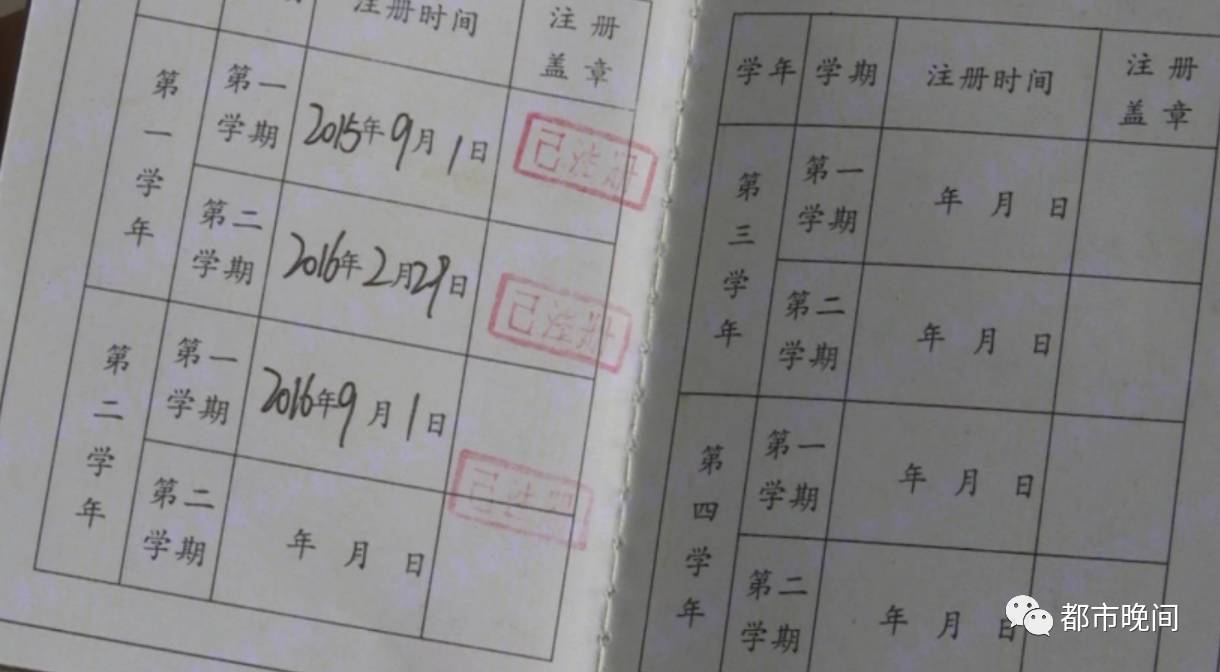 注册时间
注册
盖章
第一学年
第一
学期
2015年9月1日
已注册
第二
学期
2016年2月29日
已注册
第二学年
第一
学期
2016年9月1日
已注册
第二
学期
年 月 日
学年 学期 注册时间 注册
盖章
第三学年
第一
学期
年 月 日
第二
学期
年 月 日
第四学年
第一
学期
年 月 日
第二
学期
年 月 日
都市晚间